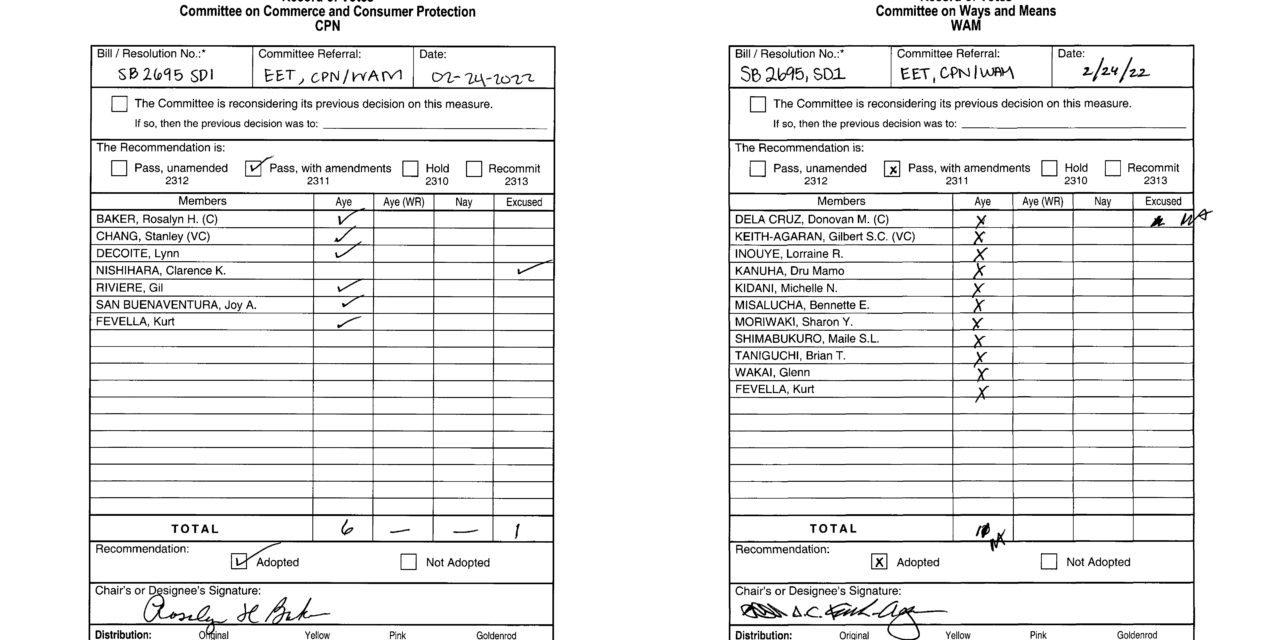 Committee on Commerce and Consumer Protection
CPN
Bill / Resolution No.:* Committee Referral: Date:
SB 2695 SD1 EET, CPN/WAM 02-24-2022
The Committee is reconsidering its previous decision on this measure.
If so, then the previous decision was to:
The Recommendation is:
Pass, unamended Pass, with amendments Hold Recommit
2312 2311 2310 2313
Members Aye Aye (WR) Nay Excused
BAKER, Rosalyn H. (C)
CHANG, Stanley (VC)
DECOITE, Lynn
NISHIHARA, Clarence K.
RIVIERE, Gil
SAN BUENAVENTURA, Joy A.
FEVELLA, Kurt
TOTAL 6 — — 1
Recommendation:
Adopted Not Adopted
Chair's or Designee's Signature:
Rosalyn H Baker
Distribution: Original Yellow Pink Goldenrod
Committee on Ways and Means
WAM
Bill / Resolution No.:* Committee Referral: Date:
SB 2695, SD1 EET, CPN/WAM 2/24/22
The Committee is reconsidering its previous decision on this measure.
If so, then the previous decision was to:
The Recommendation is:
Pass, unamended X Pass, with amendments Hold Recommit
2312 2311 2310 2313
Members Aye Aye (WR) Nay Excused
DELA CRUZ, Donovan M. (C) X
KEITH-AGARAN, Gilbert S.C. (VC) X
INOUYE, Lorraine R. X
KANUHA, Dru Mamo X
KIDANI, Michelle N. X
MISALUCHA, Bennette E. X
MORIWAKI, Sharon Y. X
SHIMABUKURO, Maile S.L. X
TANIGUCHI, Brian T. X
WAKAI, Glenn X
FEVELLA, Kurt X
TOTAL
Recommendation:
X Adopted Not Adopted
Chair's or Designee's Signature:
Distribution: Original Yellow Pink Goldenrod